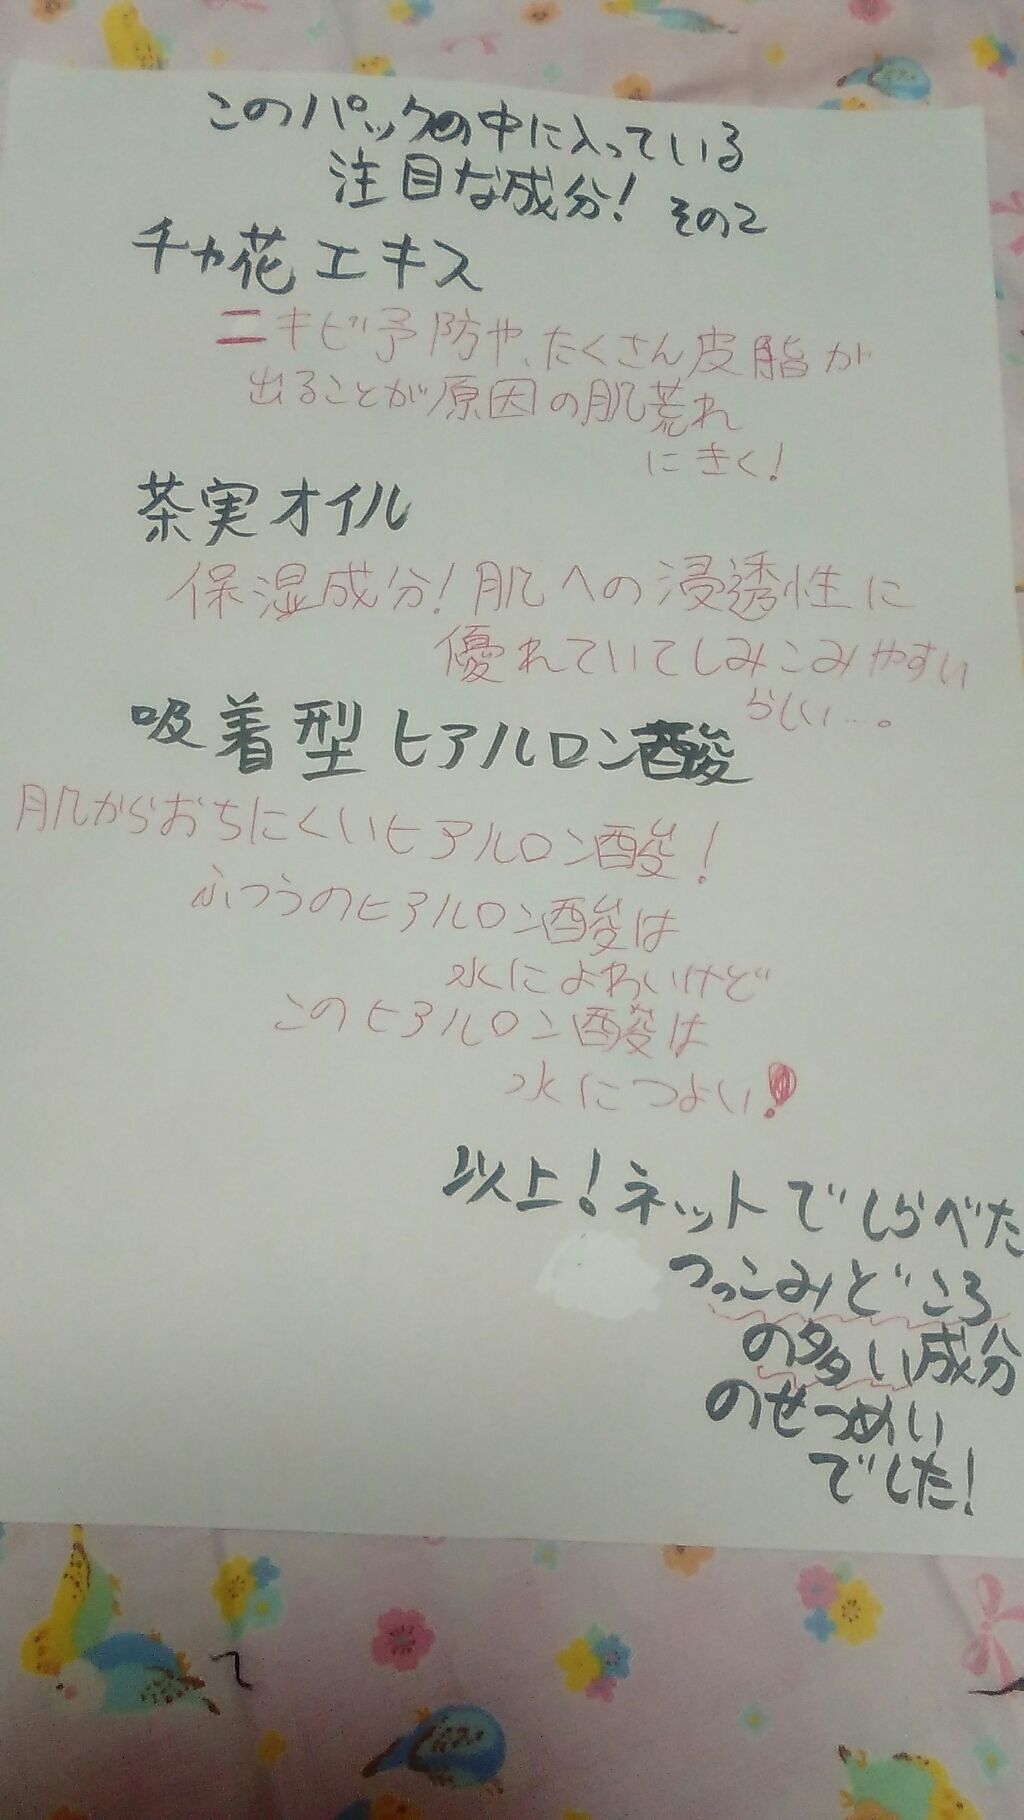 このパックの中に入っている
注目な成分！ その2
チャ花エキス
ニキビ予防や、たくさん皮脂が
出ることが原因の肌荒れ
にきく！
茶実オイル
保湿成分！肌への浸透性に
優れていてしみこみやすい
らしい…。
吸着型ヒアルロン酸
肌からおちにくいヒアルロン酸！
ふつうのヒアルロン酸は
水によわいけど
このヒアルロン酸は
水につよい！
以上！ネットでしらべた
つっこみどころ
の多い成分
のせつめい
でした！